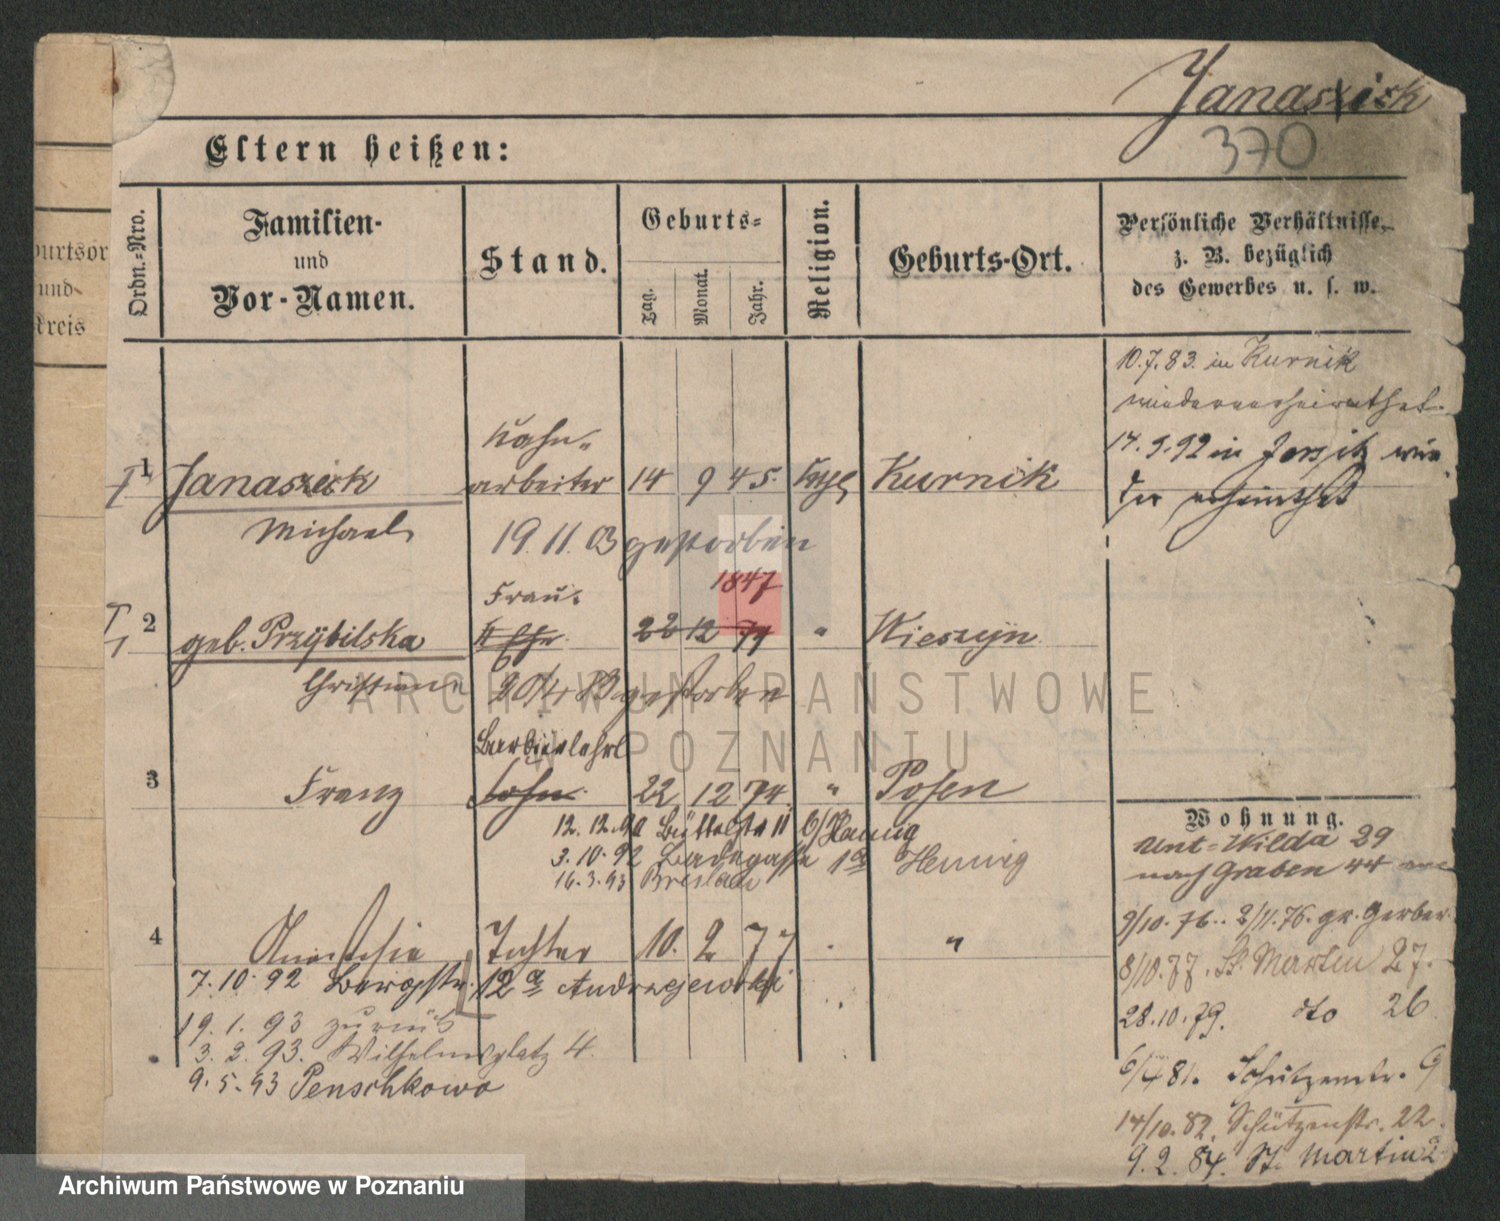 Janaszick
370
Eltern heißen:
burtsor
und
Kreis
Ordn.-Nro.
Familien-
und
Vor-Namen.
Stand.
Geburts-
Tag.
Monat.
Jahr.
Religion.
Geburts-Ort.
Persönliche Verhältnisse,
z. B. bezüglich
des Gewerbes u. s. w.
10.7.83. in Kurnik
wiederverheirathet.
14.9.92 in Jersitz wie
der verheirathet
1 Janaszick Michael
Bahn-
arbeiter 14 9 45. Kurnik
19.11.03 gestorben
1847
Frau.
2 geb. Przybilska 22 12 74 " Kieszyn
Christine gestorben
Barbierlehrl
3 Franz Sohn 22 12 74 " Posen
12.12.90 Büttelstr 11
3.10.92 Badegasse 1a Hennig
16.3.93 Breslau
4 Anastasia Tochter 10. 2 77 "
7.10.92 Bergstr. 12a Andrzejewski
19.1.93 zurück
3.2.93. Wilhelmsplatz 4.
9.5.93 Penschkowo
Wohnung.
Unt-Wilda 29
nach Graben 44
9/10.76.. 2/11.76. gr. Gerber
8/10.77. St. Martin 27.
28.10.79. dto 26
6/4 81. Schützenstr. 9
14/10.82. Schützenstr. 22.
9.2.84. St. Martin 2
ARCHIWUM PAŃSTWOWE
W POZNANIU
Archiwum Państwowe w Poznaniu